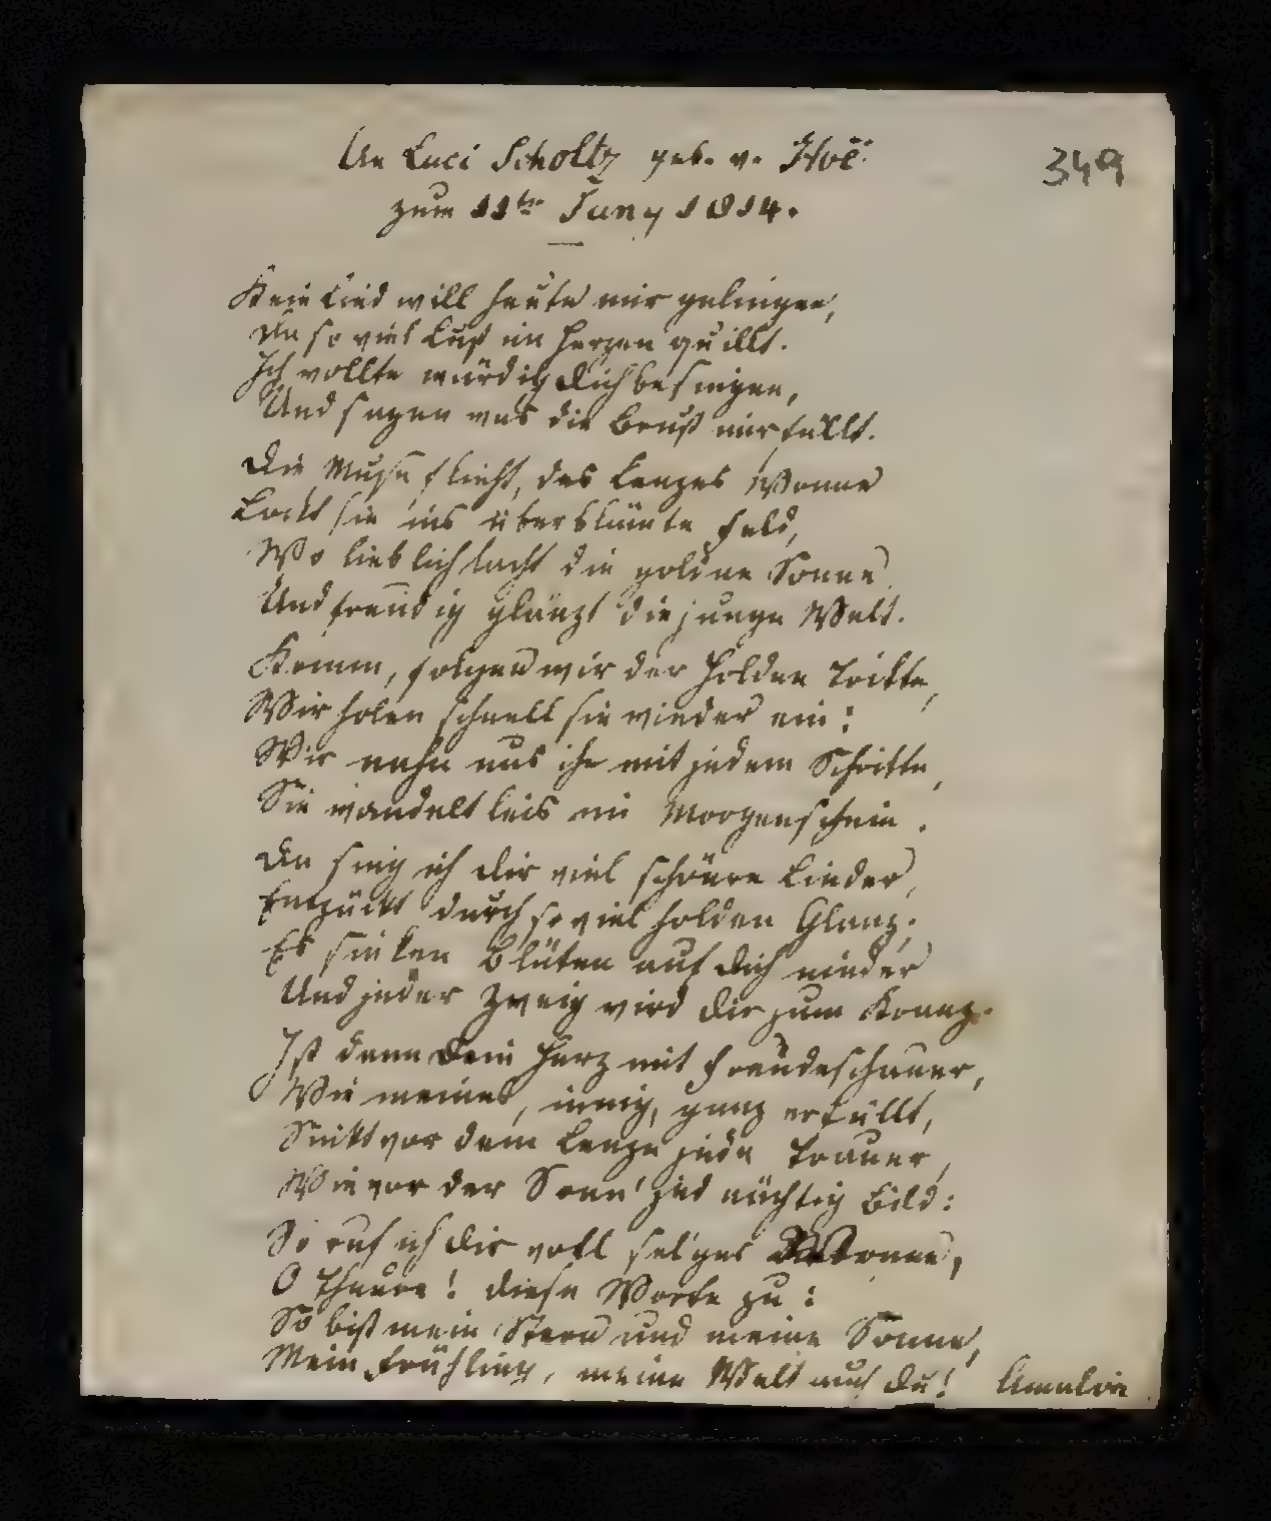 An Luci Scholtz geb. v. Hoë.
349
zum 11ten Juny 1814.
Kein Lied will heute mir gelingen,
Da so viel Lust im Herzen quillt.
Ich wollte würdig Dich besingen,
Und sagen was die Brust mir füllt.
Die Muse flieht, des Lenzes Wonne
Lockt sie ins überblümte Feld,
Wo lieblich lacht die goldne Sonne
Und freudig glänzt die junge Welt.
Komm, folgen wir der Holden Tritte,
Wir holen schnell sie wieder ein:
Wir nahn uns ihr mit jedem Schritte,
Sie wandelt leis im Morgenschein.
Da sing ich Dir viel schönre Lieder,
Entzückt durch so viel holden Glanz;
Es sinken Blüten auf Dich nieder
Und jeder Zweig wird Dir zum Kranz.
Ist dann Dein Herz mit Freudeschauer,
Wie meines, innig, ganz erfüllt,
Sinkt vor dem Lenze jede Trauer,
Wie vor der Sonn' jed nächtig Bild:
So ruf ich Dir voll sel'ger Wonne,
O Theure! diese Worte zu:
So bist mein Stern und meine Sonne,
Mein Frühling, meine Welt auch du! Amalie